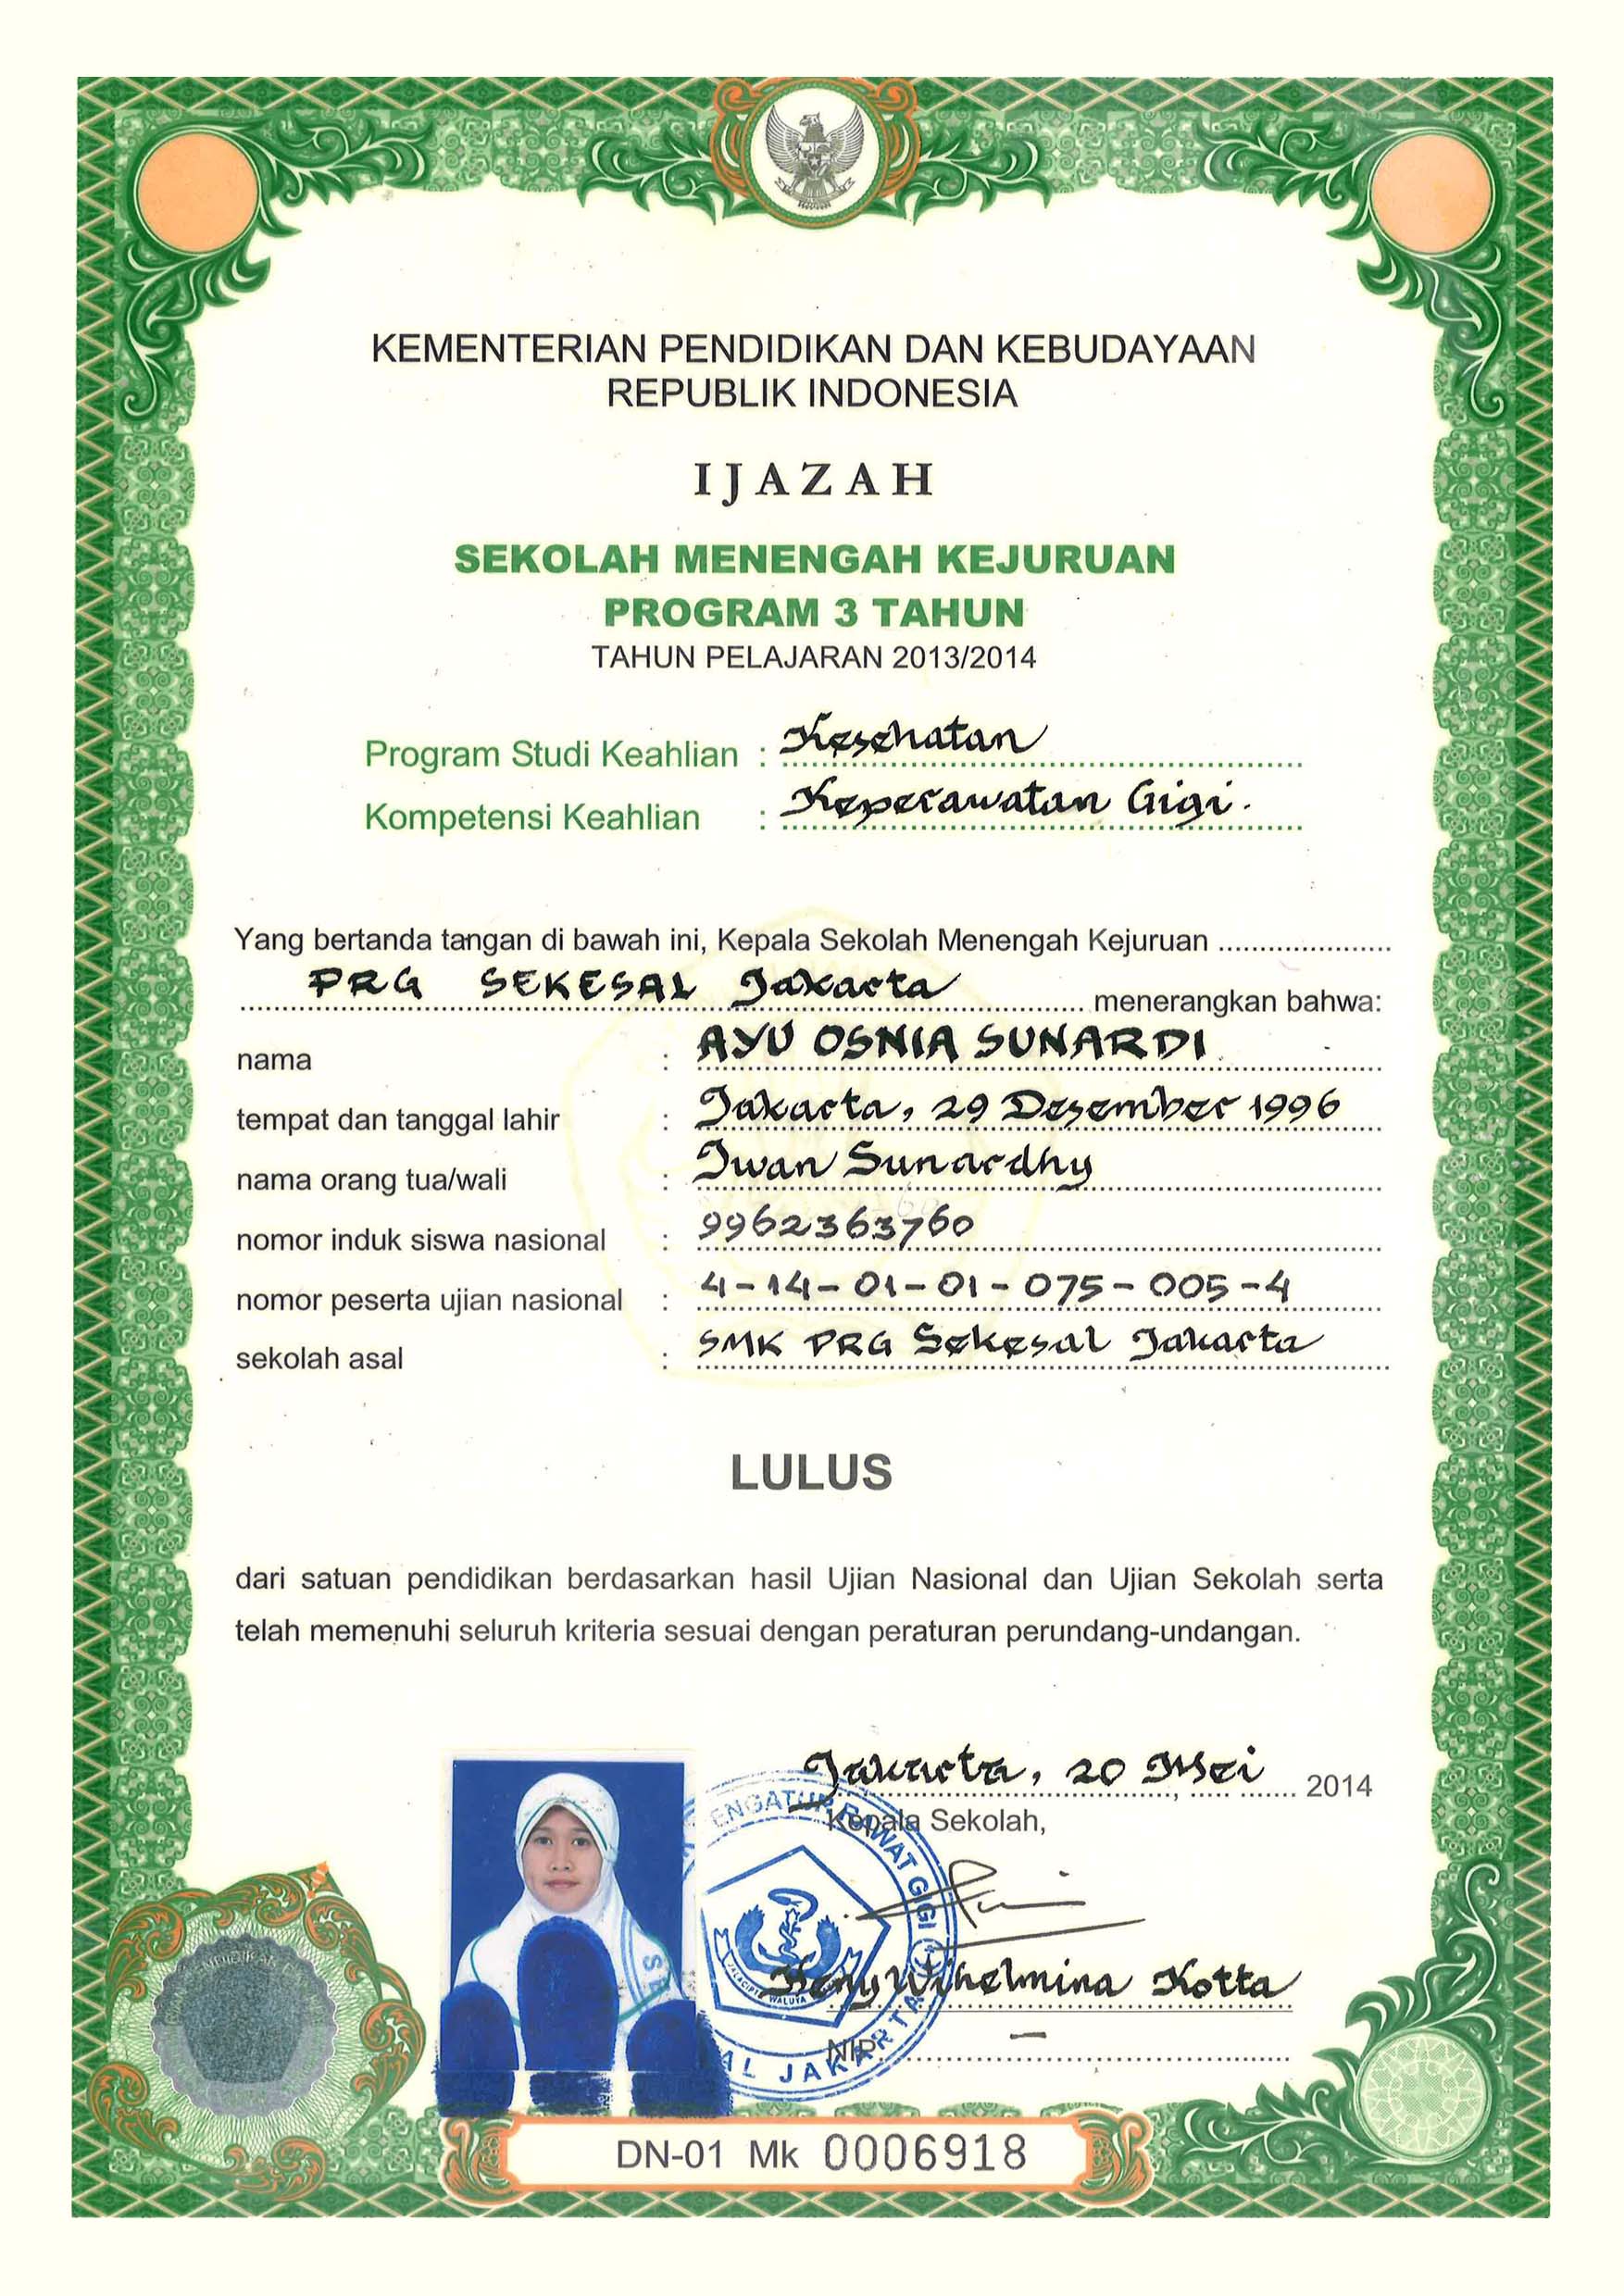 KEMENTERIAN PENDIDIKAN DAN KEBUDAYAAN
REPUBLIK INDONESIA
IJAZAH
SEKOLAH MENENGAH KEJURUAN
PROGRAM 3 TAHUN
TAHUN PELAJARAN 2013/2014
Program Studi Keahlian : Kesehatan
Kompetensi Keahlian : Keperawatan Gigi.
Yang bertanda tangan di bawah ini, Kepala Sekolah Menengah Kejuruan
PRG SEKESAL Jakarta menerangkan bahwa:
nama : AYU OSNIA SUNARDI
tempat dan tanggal lahir : Jakarta, 29 Desember 1996
nama orang tua/wali : Iwan Sunardhy
nomor induk siswa nasional : 9962363760
nomor peserta ujian nasional : 4-14-01-01-075-005-4
sekolah asal : SMK PRG Sekesal Jakarta
LULUS
dari satuan pendidikan berdasarkan hasil Ujian Nasional dan Ujian Sekolah serta
telah memenuhi seluruh kriteria sesuai dengan peraturan perundang-undangan.
Jakarta, 20 Mei 2014
Kepala Sekolah,
Heny Wihelmina Kotta
NIP. –
PENGATUR RAWAT GIGI
JAKARTA
WALUYA
DN-01 Mk 0006918